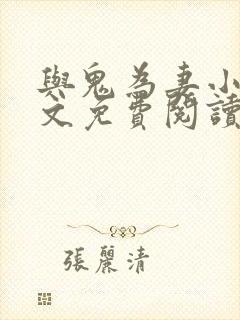 與鬼為妻小
文免費閱讀
張麗清